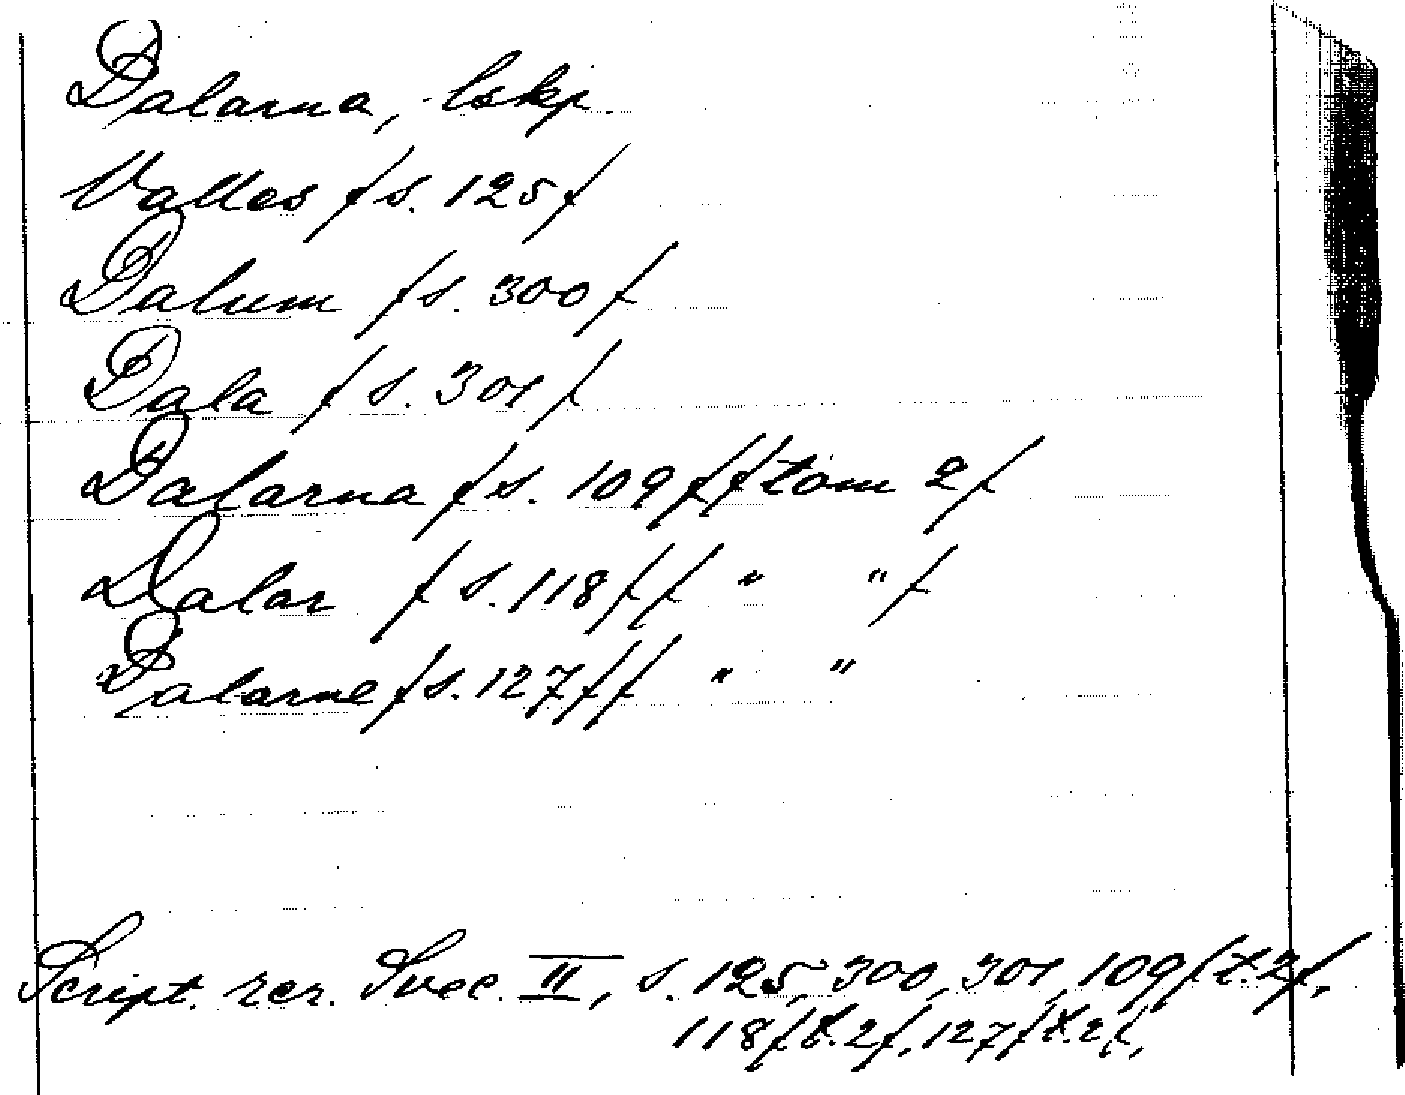 Dalarna, lskp.
Valles /s. 125/
Dalum /s. 300/
Dala /s. 301/
Dalarna /s. 109/ /tom 2/
Dalar /s. 118/ / " " /
Dalarne /s. 127/ / " "
Script. rer. Svec. II, s. 125, 300, 301, 109 /t. 2/,
118 /t. 2/, 127 /t. 2/,